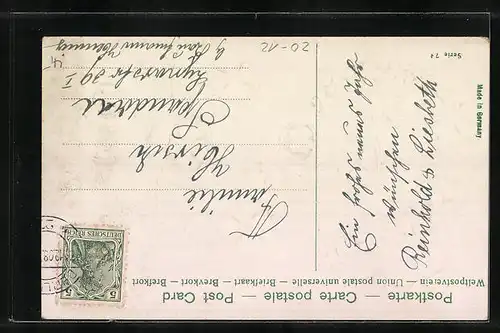 Postkarte — Carte postale — Post Card
Weltpostverein — Union postale universelle — Briefkaart — Brevkort — Brefkort
Made in Germany
Serie 74
20-12
Ein frohes neues Jahr
wünschen
Reinhold & Liesbeth
Familie
Hirsch
Spandau
Lynarstr 29 I
b/
DEUTSCHES REICH
5 5